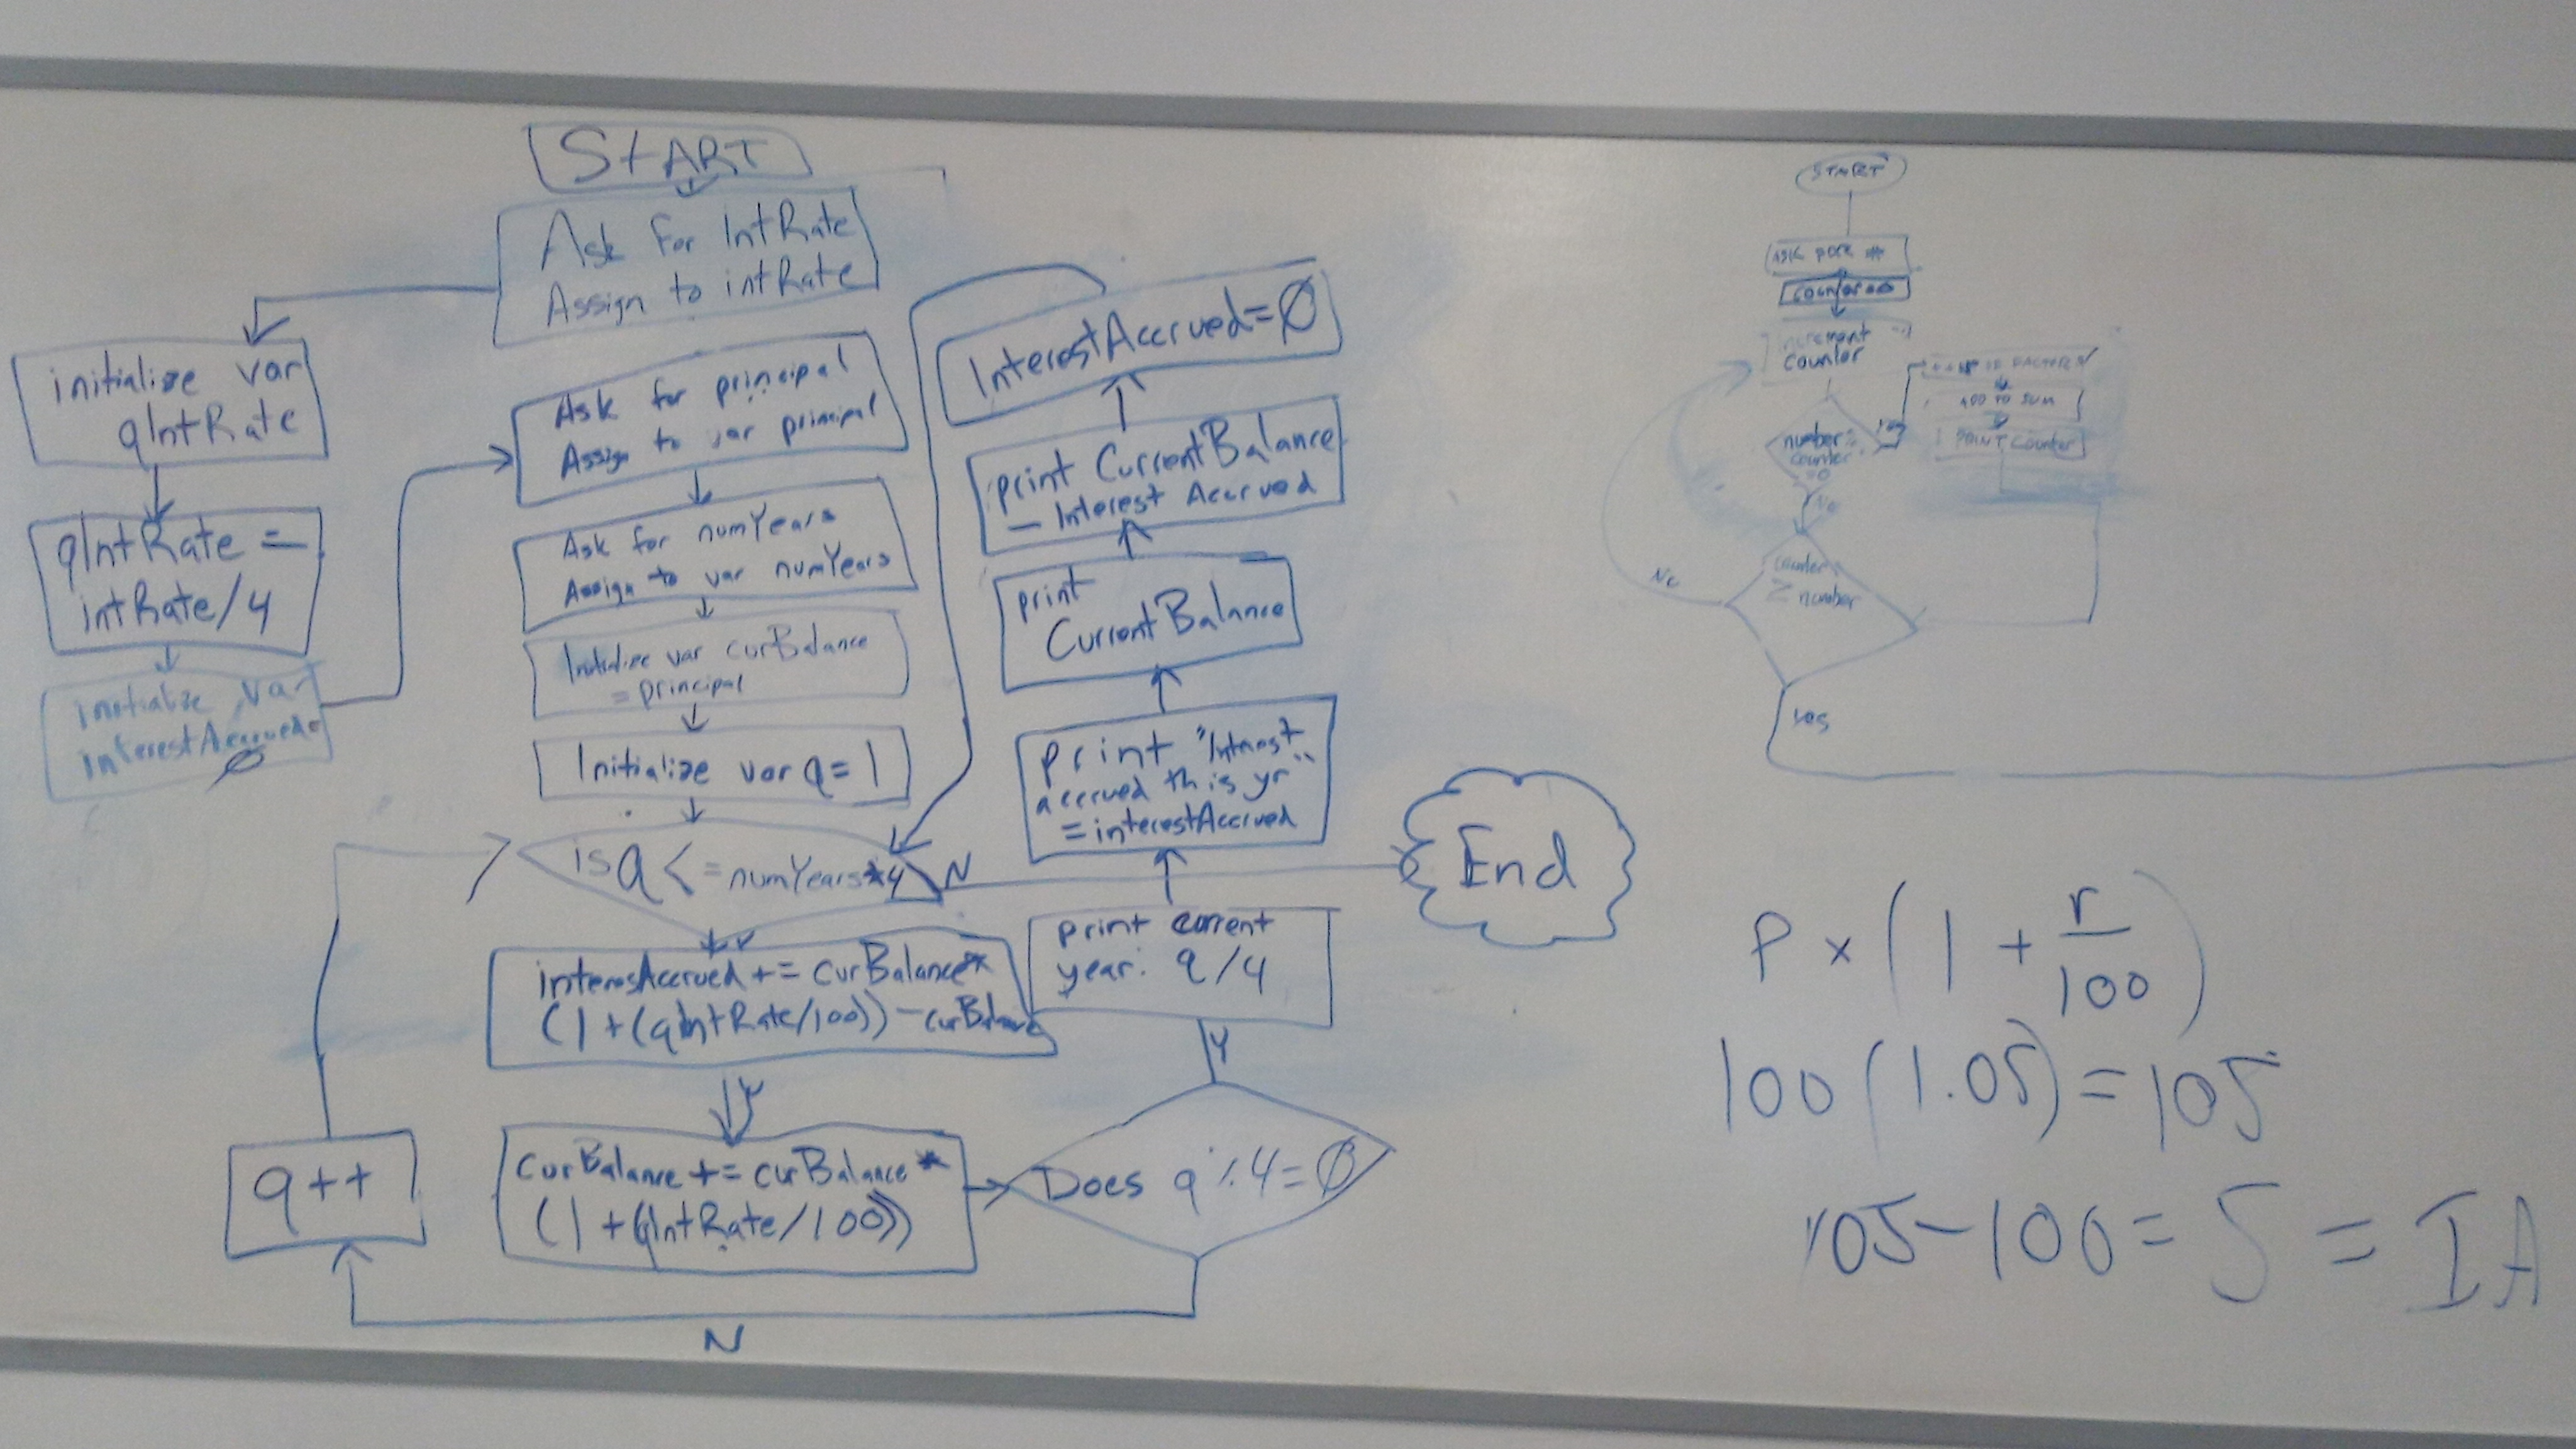 START
Ask for IntRate
Assign to intRate
initialize var
qIntRate
qIntRate =
intRate/4
initialize var
interestAccrued=
Ø
Ask for principal
Assign to var principal
Ask for numYears
Assign to var numYears
Initialize var curBalance
= principal
Initialize var q = 1
is q <= numYears*4
N
End
interesAccrued += curBalance*
(1 + (qIntRate/100)) - curBalance
Y
curBalance += curBalance *
(1 + (qIntRate/100))
Does q % 4 = Ø
N
q++
Y
print current
year: q/4
print "Interest
accrued this yr"
= interestAccrued
print
CurrentBalance
print CurrentBalance
— Interest Accrued
InterestAccrued = Ø
START
ASK
#
counter
increment
counter
number
counter
=0
yes
OF FACTORS
ADD TO SUM
PRINT counter
No
counter
≥ number
No
yes
P × (1 + r/100)
100 (1.05) = 105
105 - 100 = 5 = IA